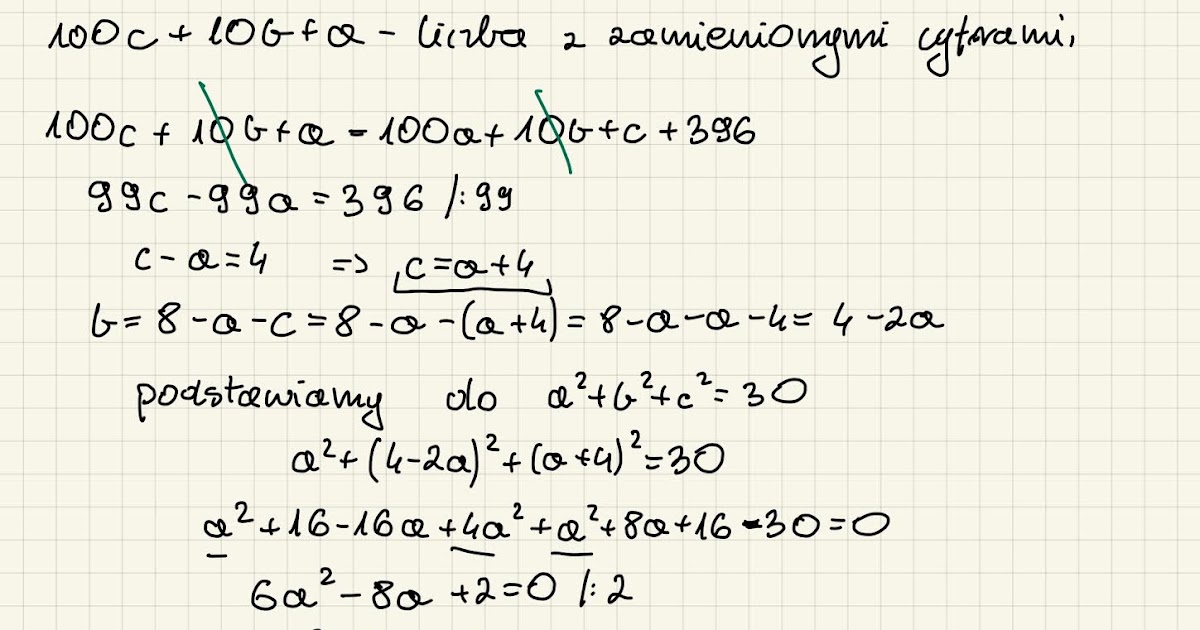 100c + 10b + a - liczba z zamienionymi cyframi,
100c + 10b + a - 100a + 10b + c + 396
99c - 99a = 396 /: 99
c - a = 4 => c = a + 4
b = 8 - a - c = 8 - a - (a + 4) = 8 - a - a - 4 = 4 - 2a
podstawiamy do a² + b² + c² = 30
a² + (4 - 2a)² + (a + 4)² = 30
a² + 16 - 16a + 4a² + a² + 8a + 16 - 30 = 0
6a² - 8a + 2 = 0 /: 2